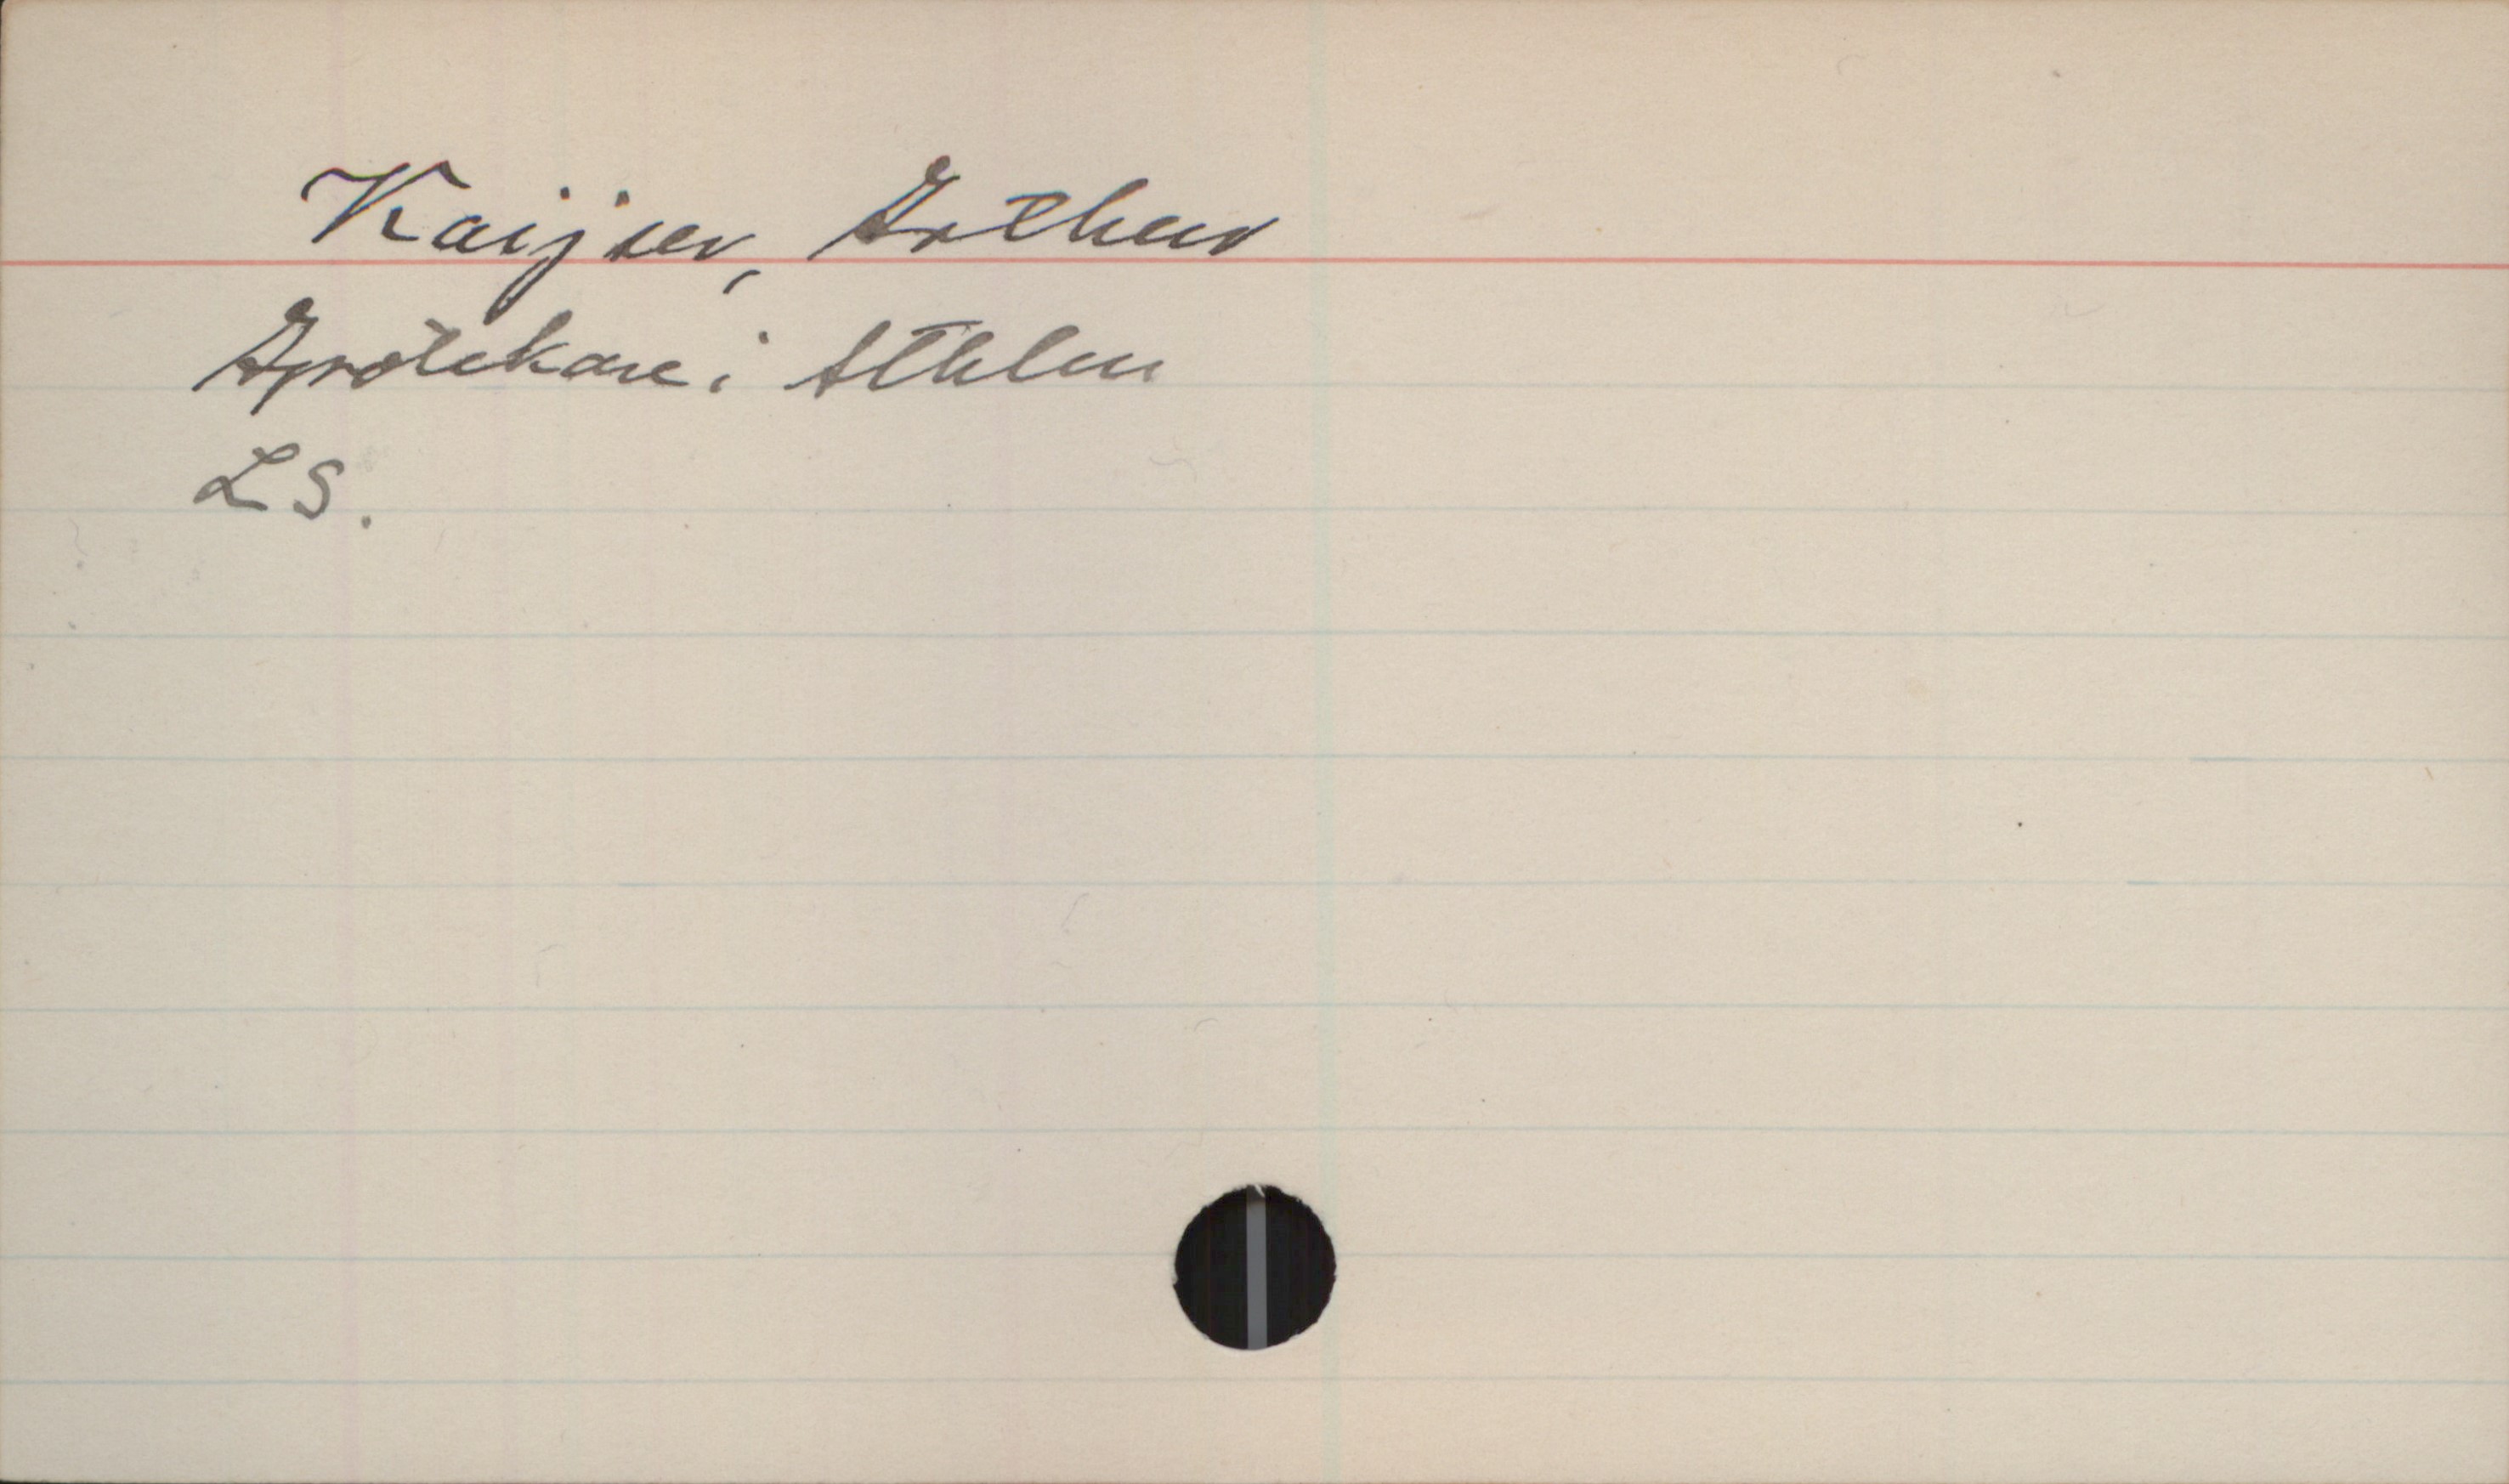 Kaijser, Arthur
Apotekare i Sthlm
LS.